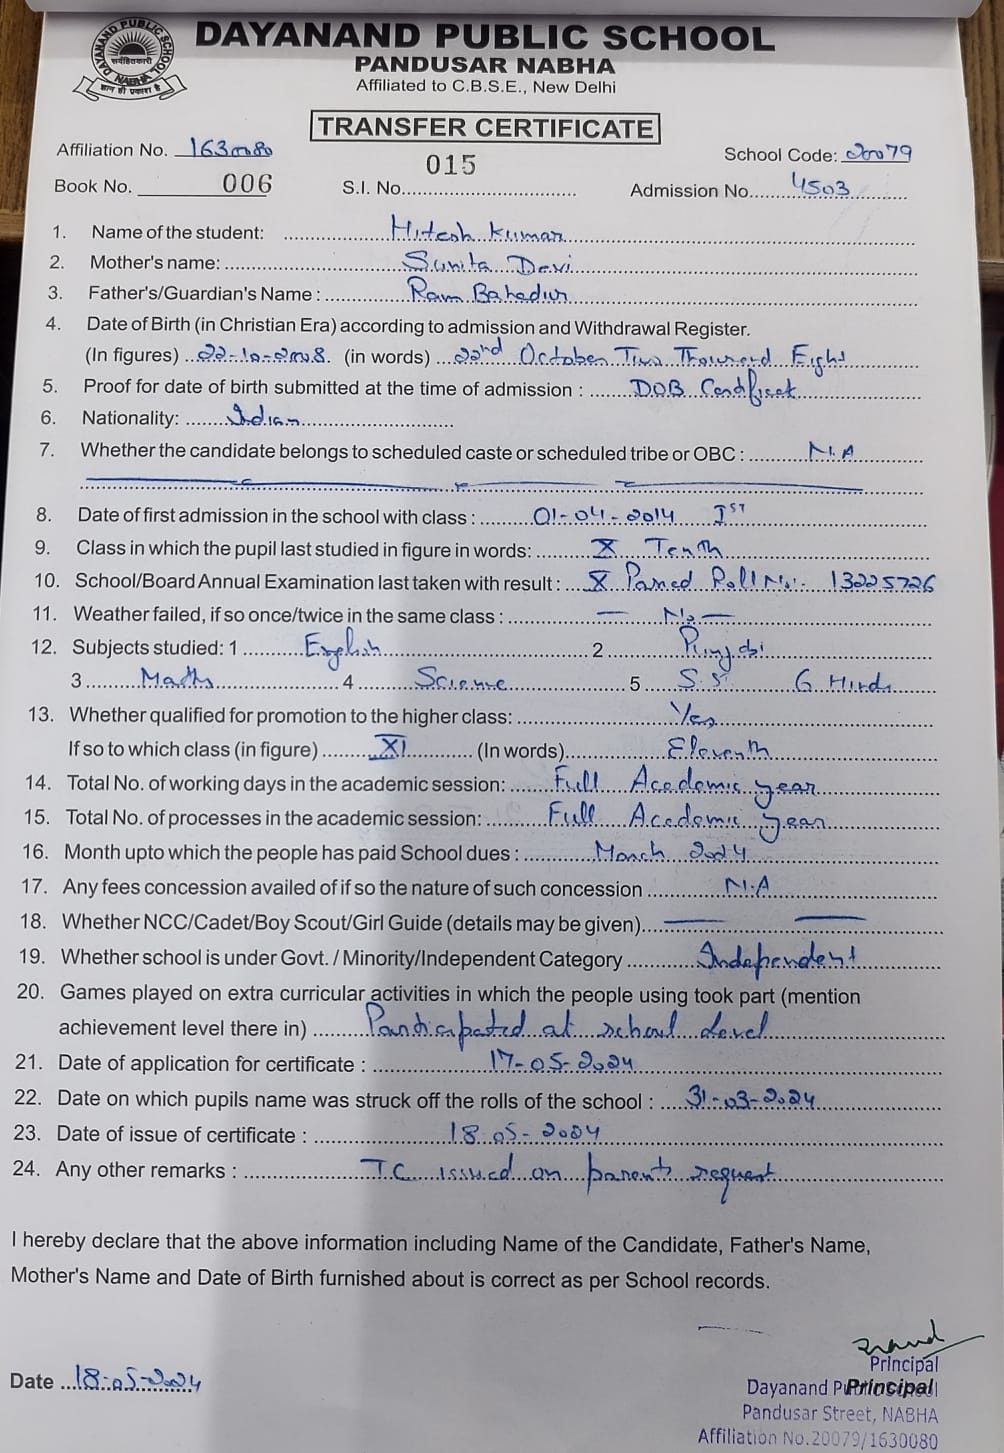 DAYANAND PUBLIC SCHOOL
PANDUSAR NABHA
Affiliated to C.B.S.E., New Delhi
DAYANAND PUBLIC SCHOOL
NABHA
TRANSFER CERTIFICATE
Affiliation No. 1630080
015
School Code: 20079
Book No. 006 S.I. No. Admission No. 4503
1. Name of the student: Hitesh Kumar
2. Mother's name: Sunita Devi
3. Father's/Guardian's Name : Ram Bahadur
4. Date of Birth (in Christian Era) according to admission and Withdrawal Register.
(In figures) 22-10-2008. (in words) 22nd October Two Thousand Eight
5. Proof for date of birth submitted at the time of admission : DOB Certificate
6. Nationality: Indian
7. Whether the candidate belongs to scheduled caste or scheduled tribe or OBC : N.A
8. Date of first admission in the school with class : 01-04-2014 IST
9. Class in which the pupil last studied in figure in words: X Tenth
10. School/Board Annual Examination last taken with result : X Passed Roll No:- 13225726
11. Weather failed, if so once/twice in the same class : — No —
12. Subjects studied: 1 English 2 Punjabi
3 Maths 4 Science 5 S.S 6 Hindi
13. Whether qualified for promotion to the higher class: Yes
If so to which class (in figure) XI (In words) Eleventh
14. Total No. of working days in the academic session: Full Academic year
15. Total No. of processes in the academic session: Full Academic year
16. Month upto which the people has paid School dues : March 2024
17. Any fees concession availed of if so the nature of such concession N.A
18. Whether NCC/Cadet/Boy Scout/Girl Guide (details may be given). — —
19. Whether school is under Govt. / Minority/Independent Category Independent
20. Games played on extra curricular activities in which the people using took part (mention
achievement level there in) Participated at school level
21. Date of application for certificate : 17-05-2024
22. Date on which pupils name was struck off the rolls of the school : 31-03-2024
23. Date of issue of certificate : 18-05-2024
24. Any other remarks : T.C issued on parents request
I hereby declare that the above information including Name of the Candidate, Father's Name,
Mother's Name and Date of Birth furnished about is correct as per School records.
Date 18-05-2024
Principal
Dayanand Principal
Pandusar Street, NABHA
Affiliation No.20079/1630080